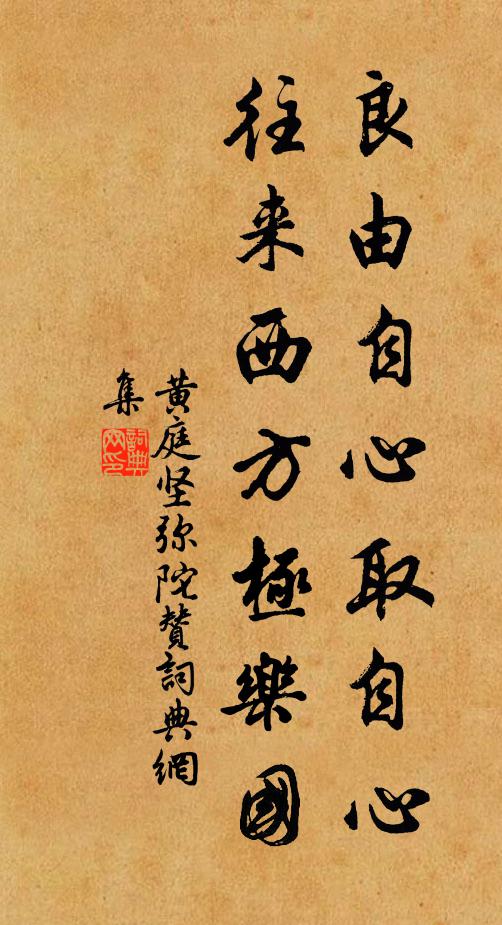 良由自心取自心
往来西方極樂國
黄庭坚弥陀赞詞典網
集
詞典
网印